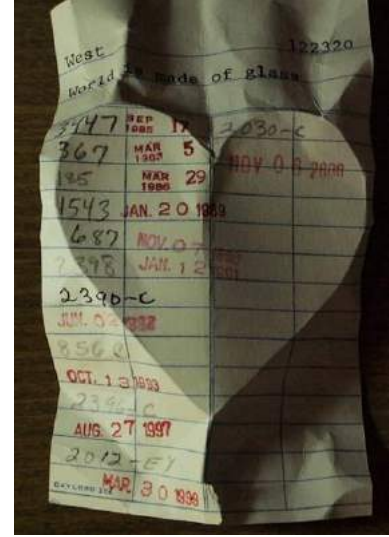 West 122320
World is made of glass
3447 SEP 1985 17 2030-C
367 MAR 5 NOV 0 8 2000
185 MAR 1986 29
1543 JAN. 20 1989
687 NOV. 07
2398 JAN. 12
2390-C
JUN. 02
856 C
OCT. 13 1993
2396-C
AUG. 27 1997
2012-EY
GAYLORD MAR 30 1998